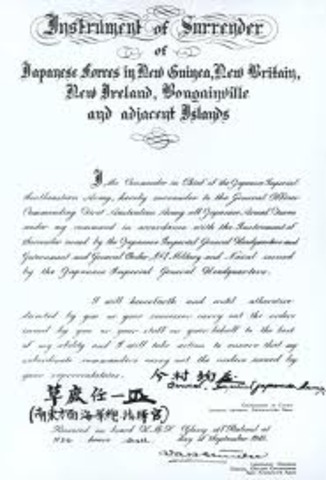 Instrument of Surrender
of
Japanese Forces in New Guinea, New Britain,
New Ireland, Bougainville
and adjacent Islands
I, the Commander in Chief of the Japanese Imperial
Southeastern Army, hereby surrender to the General Officer
Commanding First Australian Army all Japanese Armed Forces
under my command in accordance with the Instrument of
Surrender issued by the Japanese Imperial General Headquarters and
Government and General Order No.1 Military and Naval issued
by the Japanese Imperial General Headquarters.
I will henceforth and until otherwise
directed by you or your successor carry out the orders
issued by you or your staff on your behalf to the best
of my ability and I will take action to ensure that my
subordinate commanders carry out the orders issued by
your representatives.
今村均
草鹿任一
(南東方面海軍
Received on board H.M.S Glory off Rabaul at
hours day of September 1945.